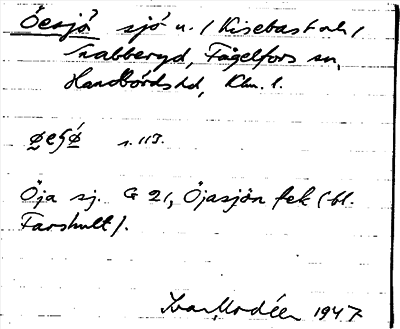 Öesjö sjö n. (Kisebast och
Snabberyd, Fågelfors sn,
Handbörds hd, Klm. l.
s. 113.
Öja sj. G 21, Öjasjön fek (bl.
Farshult).
Ivar Modéer 1947